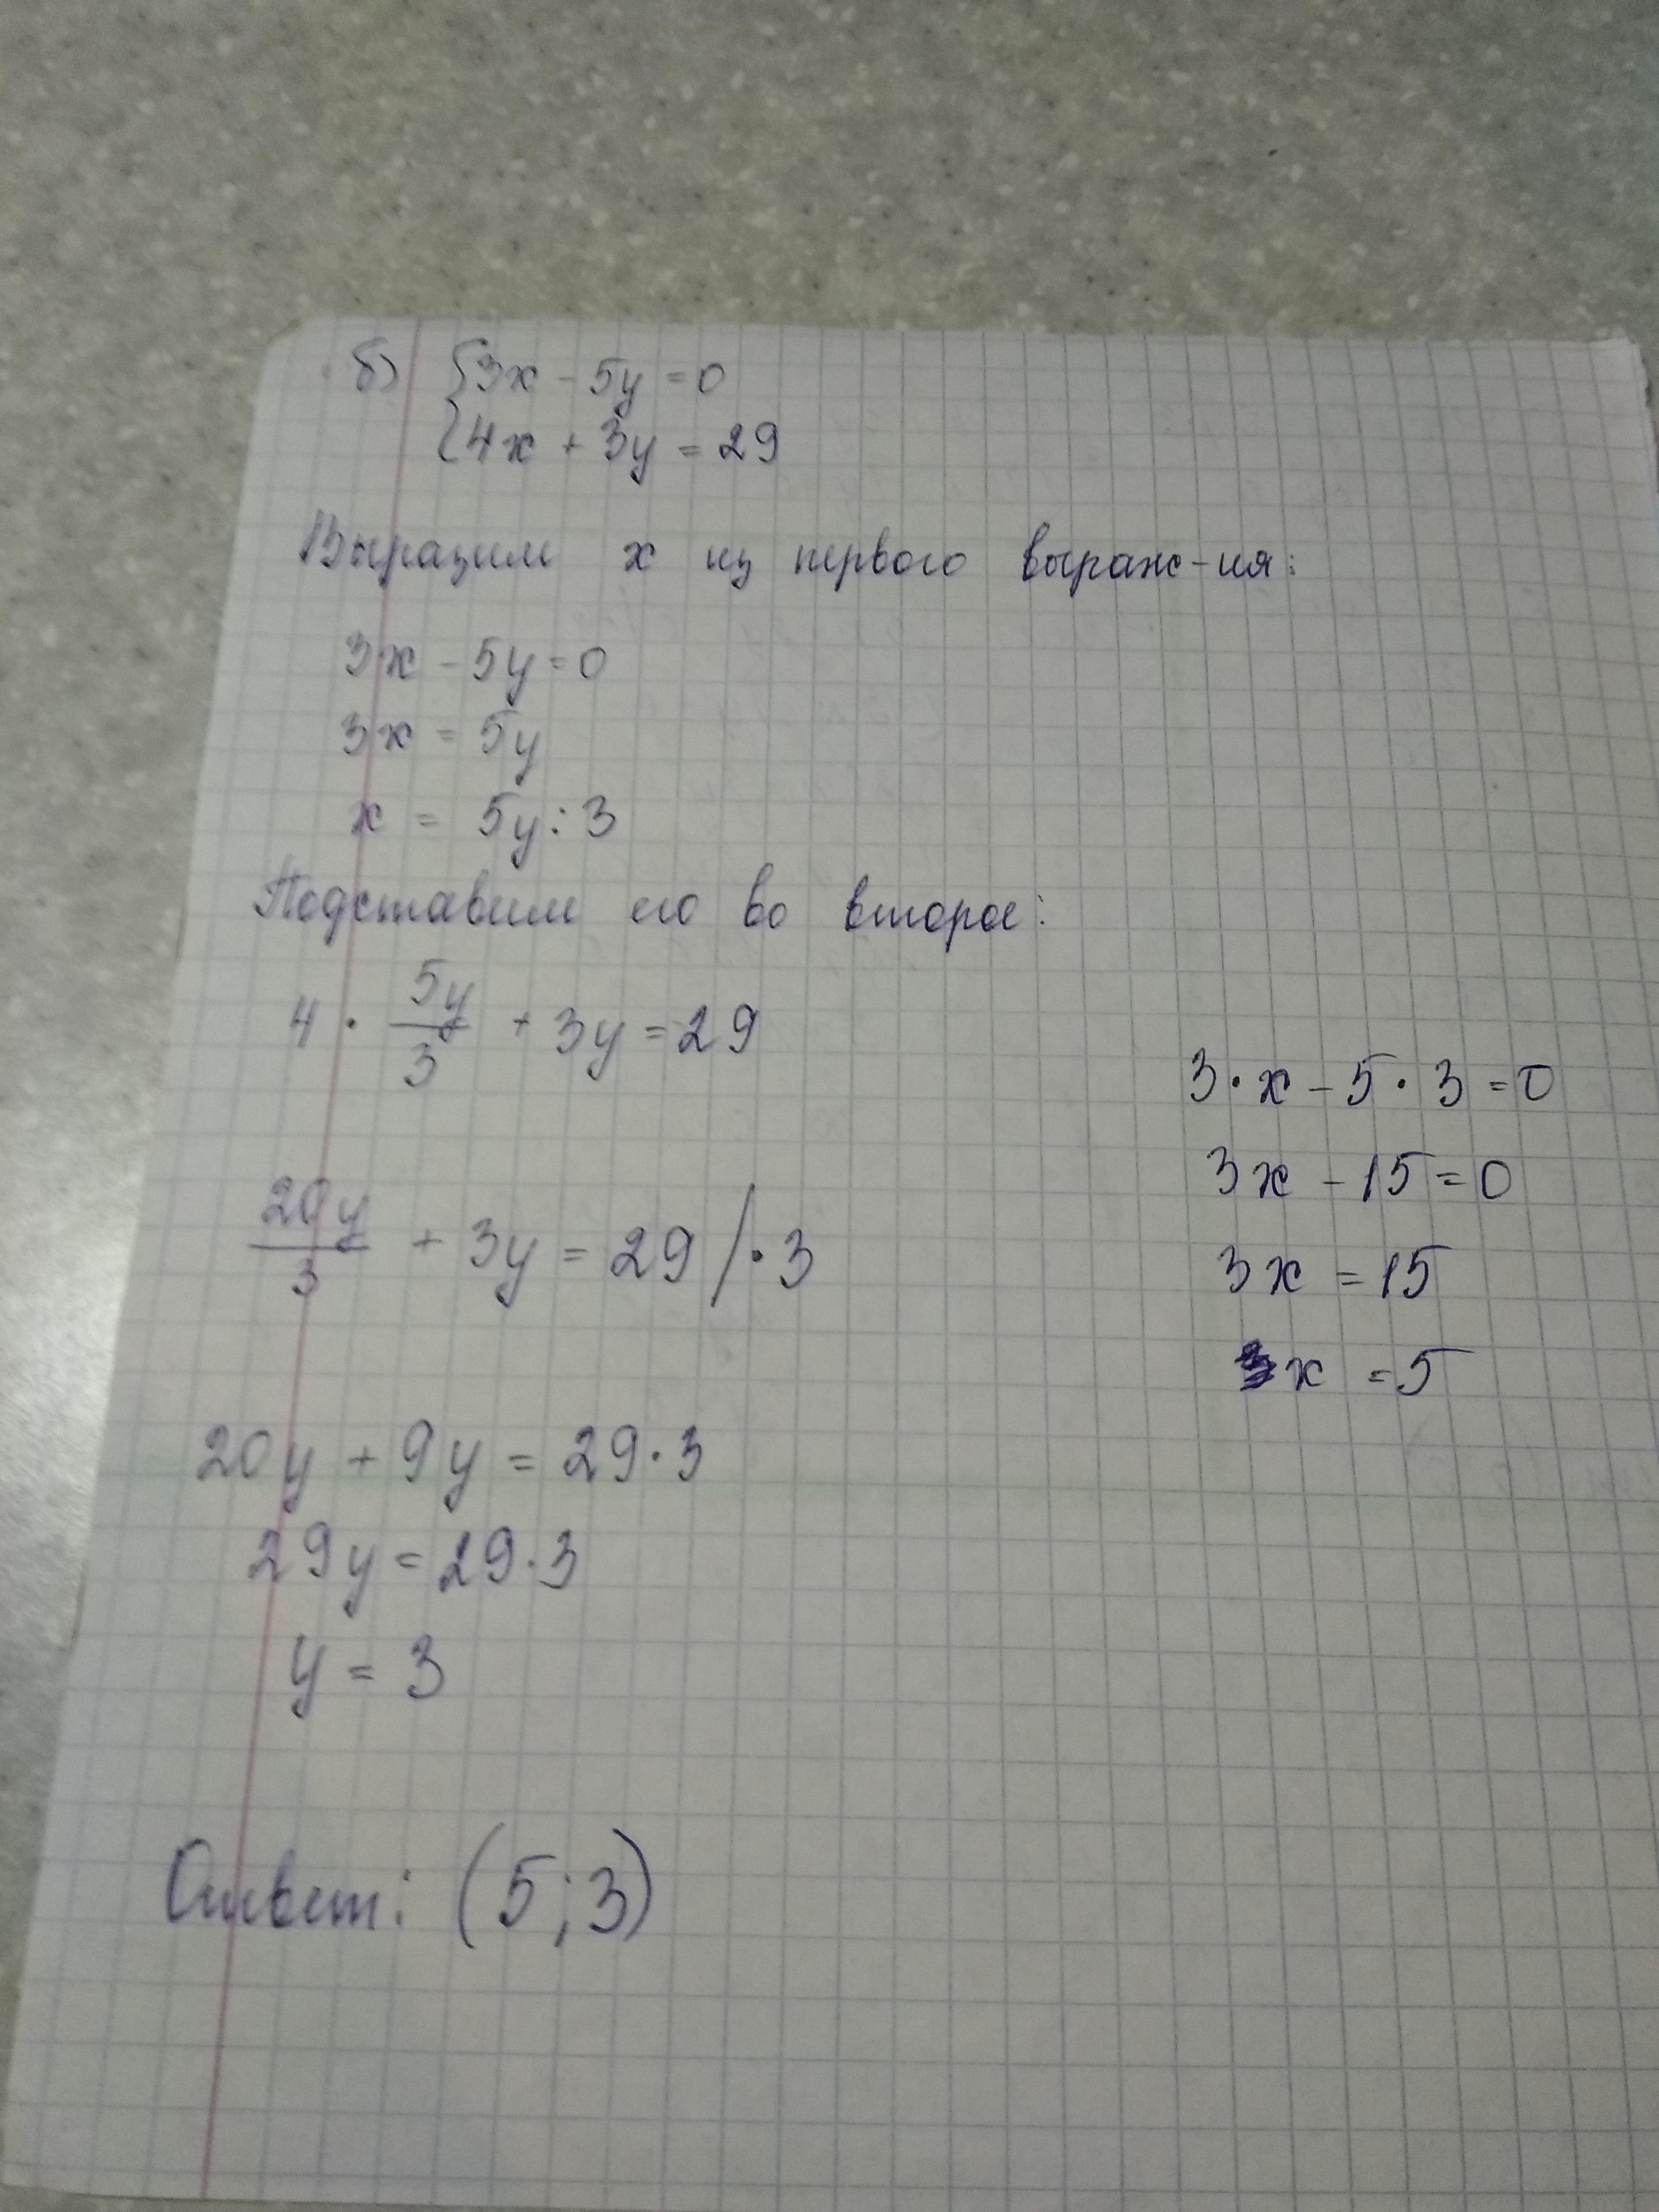 б) {3x - 5y = 0
{4x + 3y = 29
Выразим x из первого выраж-ия:
3x - 5y = 0
3x = 5y
x = 5y : 3
Подставим его во второе:
4 · 5y/3 + 3y = 29
20y/3 + 3y = 29 / · 3
20y + 9y = 29 · 3
29y = 29 · 3
y = 3
3 · x - 5 · 3 = 0
3x - 15 = 0
3x = 15
x = 5
Ответ: (5; 3)